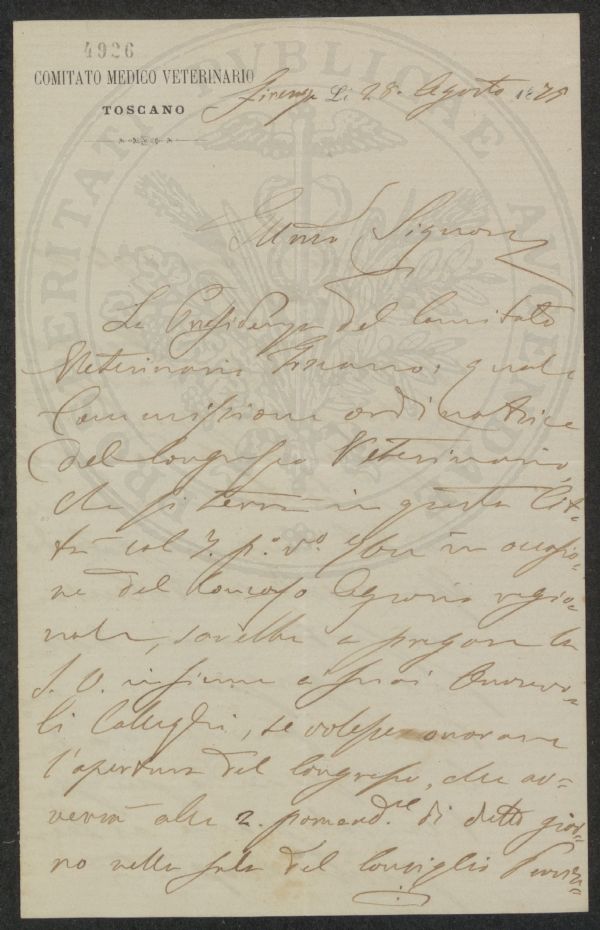 4926
COMITATO MEDICO VETERINARIO
TOSCANO
Firenze Li 28. Agosto 1875
PRO VERITATE PVBLICAE AVGENDAE
Signore
La Presidenza del Comitato
Veterinario Toscano, quale
Commissione ordinatrice
del Congresso Veterinario,
che si terrà in questa Cit=
tà col 7. p.º v.º 7bre in occasio=
ne del Concorso Agrario regio=
nale, sarebbe a pregare la
S. V. insieme a suoi Onorevo=
li Colleghi, se volesse onorare
l'apertura del Congresso, che av=
verrà alle 2. pomerid. di detto gior=
no nella sala del Consiglio Provin=